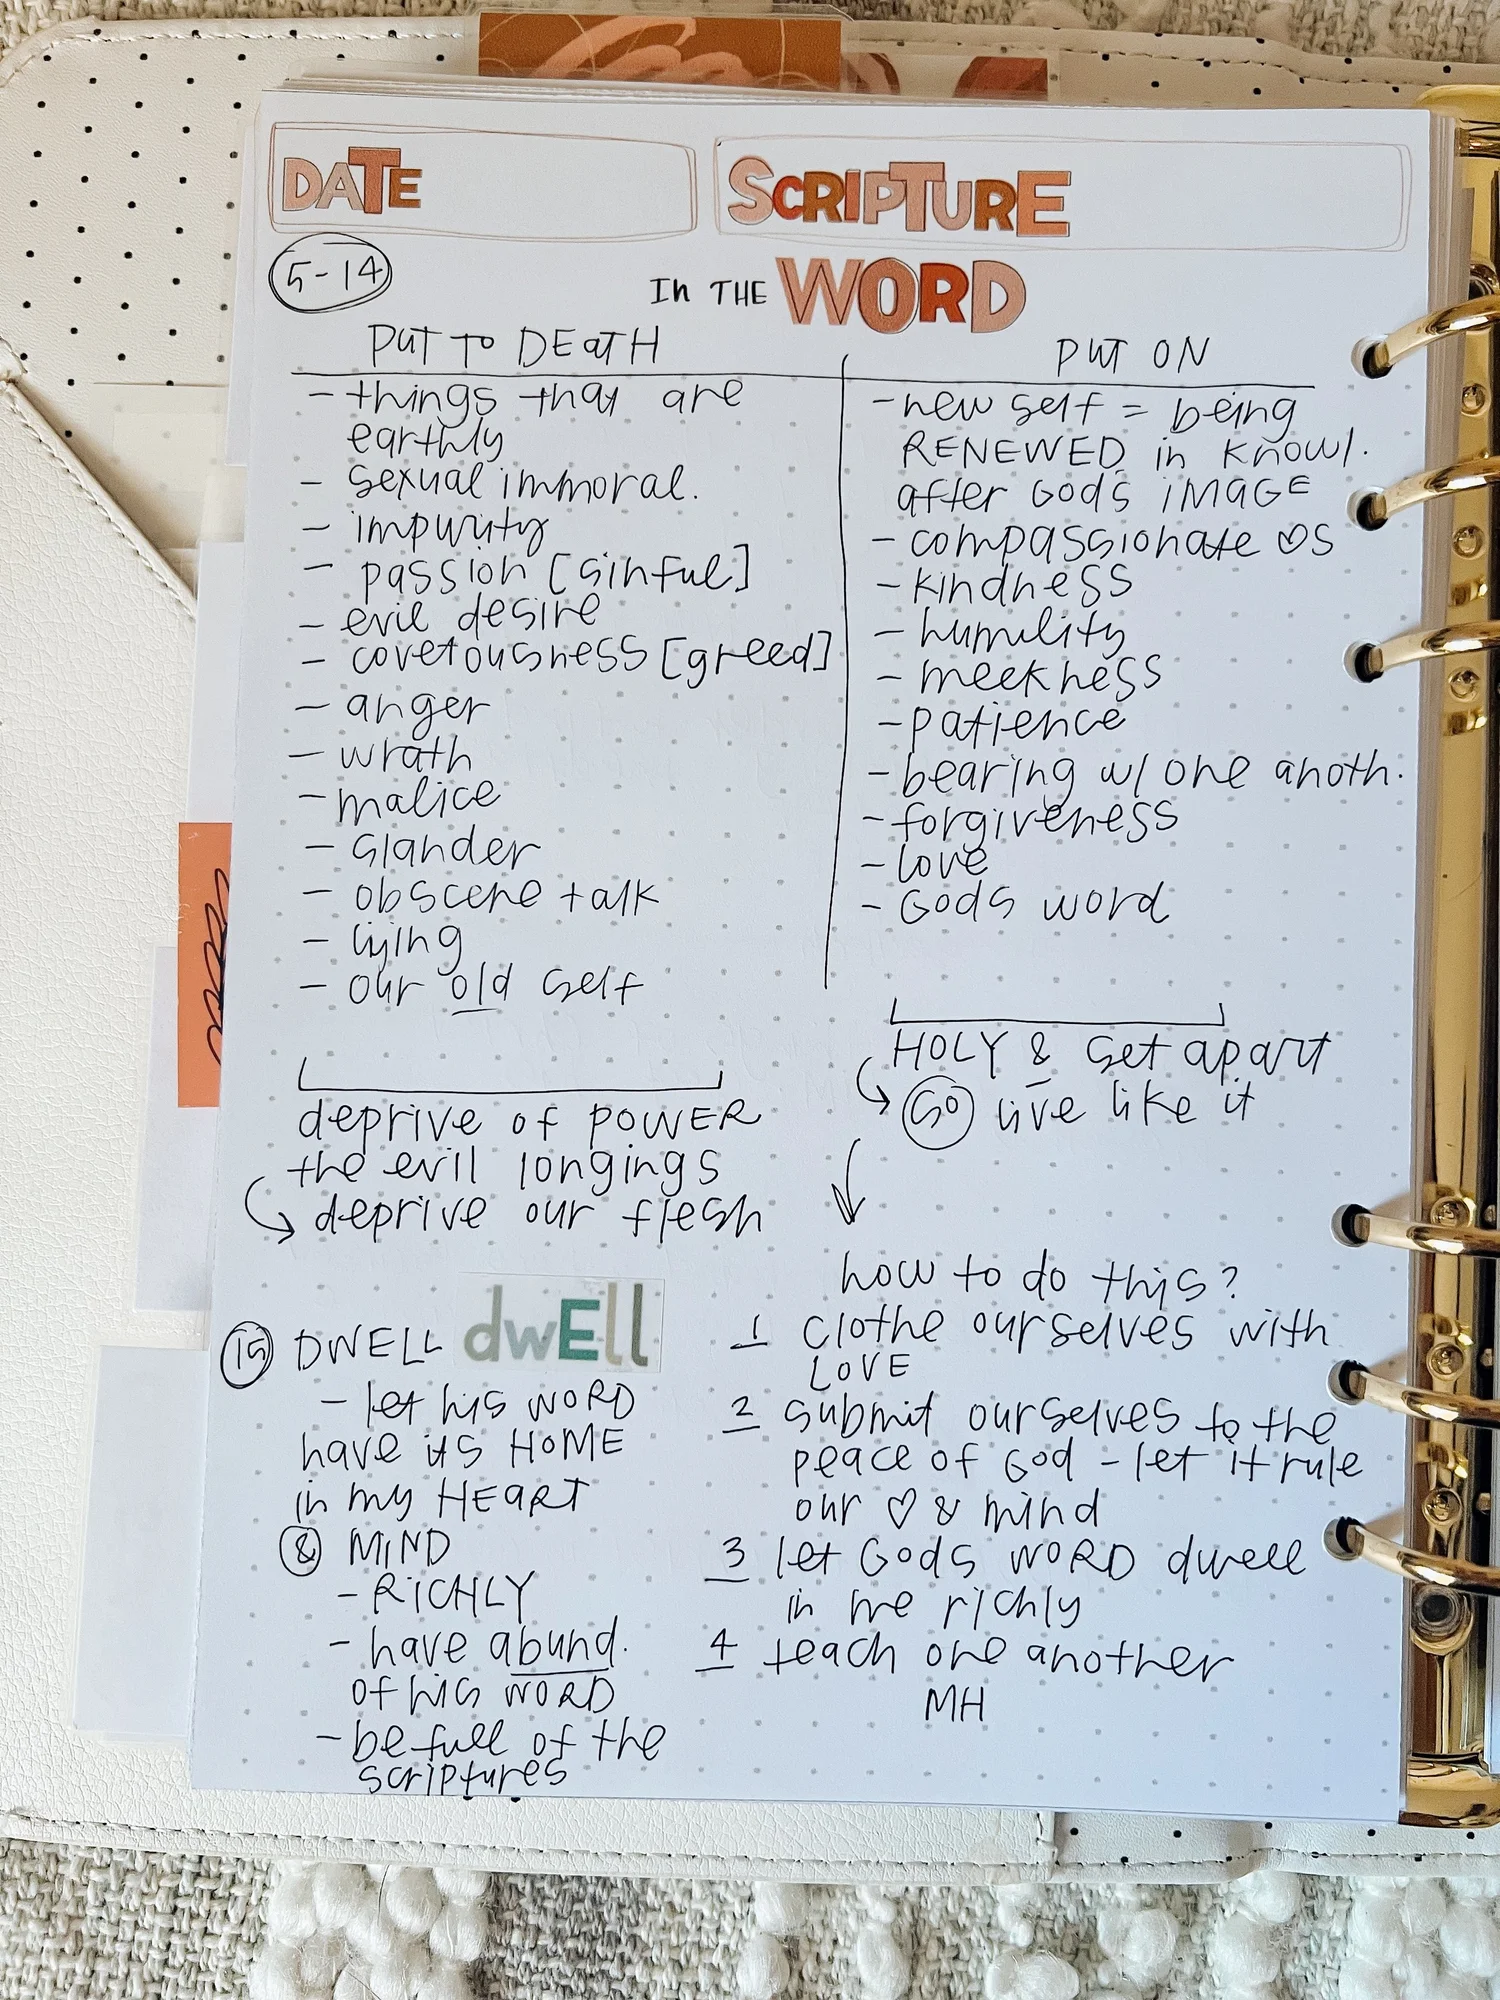 DATE
SCRIPTURE
5-14
In THE WORD
PUT TO DEATH
- things that are
earthly
- sexual immoral.
- impurity
- passion [sinful]
- evil desire
- covetousness [greed]
- anger
- wrath
- malice
- slander
- obscene talk
- lying
- our old self
deprive of POWER
the evil longings
↳ deprive our flesh
PUT ON
- new self = being
RENEWED in knowl.
after Gods IMAGE
- compassionate ♡s
- kindness
- humility
- meekness
- patience
- bearing w/ one anoth.
- forgiveness
- love
- Gods word
HOLY & set apart
↳ SO live like it
↓
how to do this?
1 clothe ourselves with
LOVE
2 submit ourselves to the
peace of God - let it rule
our ♡ & mind
3 let Gods WORD dwell
in me richly
4 teach one another
MH
15 DWELL dwEll
- let his WORD
have its HOME
in my HEART
& MIND
- RICHLY
- have abund.
of his WORD
- be full of the
scriptures